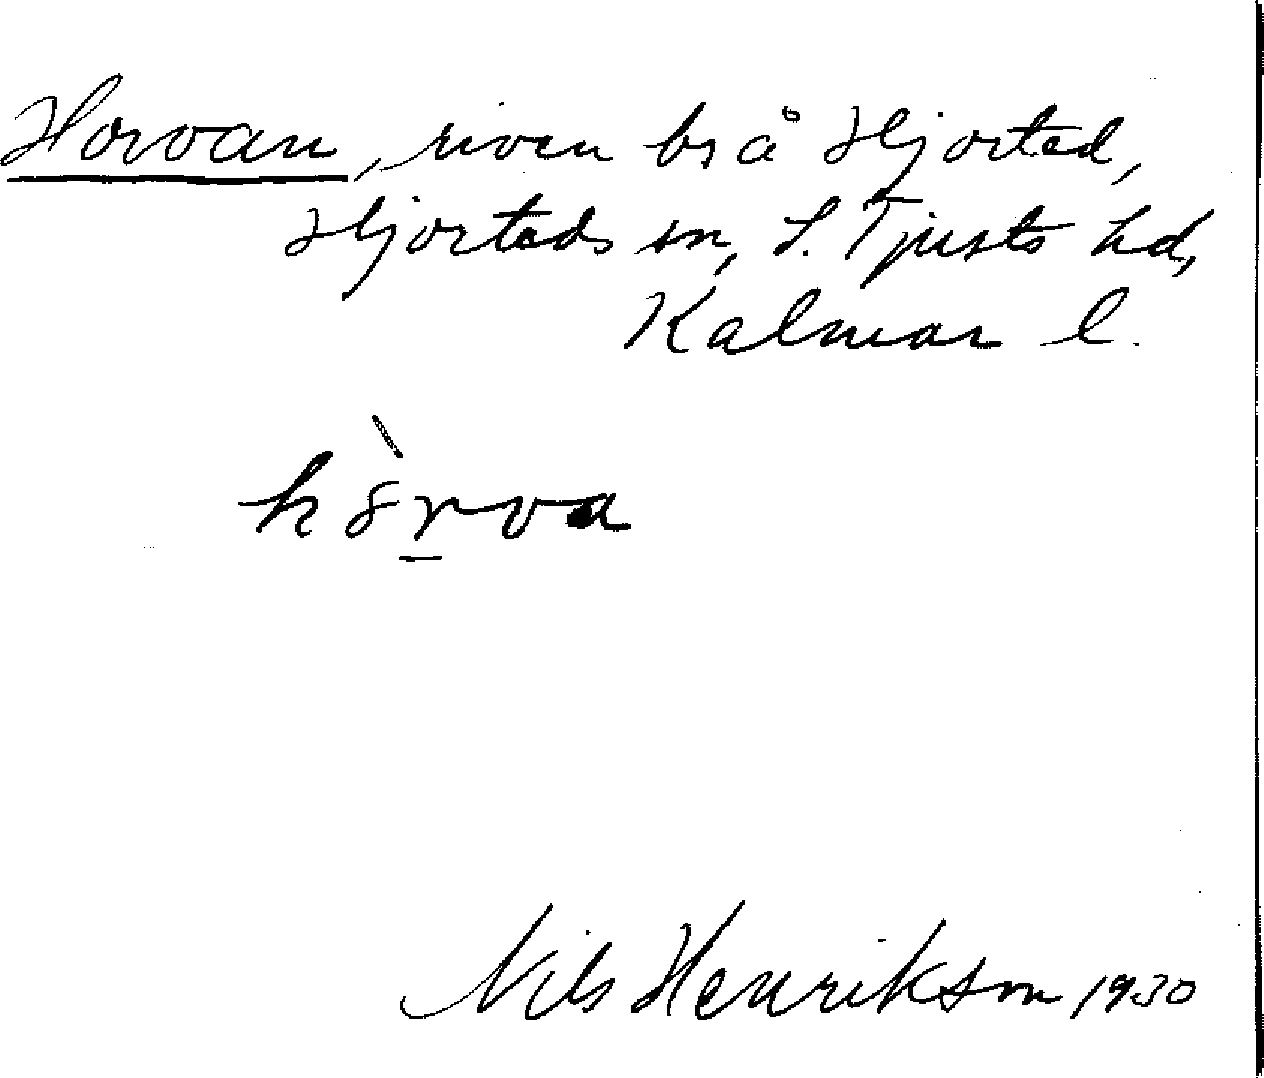 Horvan, riven br å Hjorted,
Hjorteds sn, S. Tjusts hd,
Kalmar l.
Nils Henrikson 1930